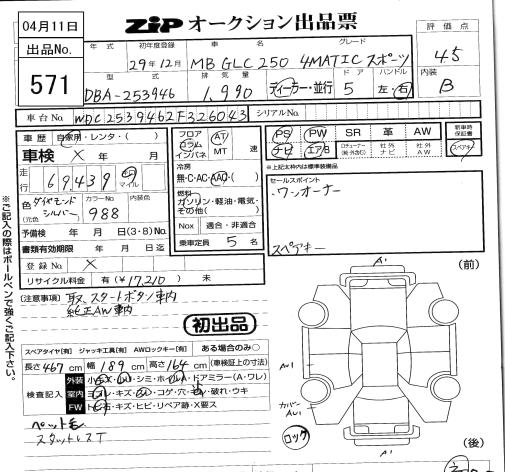 04月11日
出品No.
571
ZIP オークション出品票
年式 初年度登録 車名 グレード 評価点
29年12月 MB GLC250 4MATIC スポーツ 4.5
型式 排気量 ドア ハンドル 内装
DBA-253946 1,990 ディーラー・並行 5 左・右 B
車台No. WDC2539462F326043 シリアルNo.
車歴 自家用・レンタ・( )
車検 × 年 月
走行 69,439 km マイル
色 ダイヤモンドシルバー (元色) カラーNo. 988 内装色
予備検 年 月 日(3・8)No.
書類有効期限 年 月 日迄
登録No. ×
リサイクル料金 有(¥17,210) 未
フロア コラム インパネ AT MT 速
冷房 無・C・AC・AAC・( )
燃料 ガソリン・軽油・電気・その他( )
Nox 適合・非適合
乗車定員 5 名
PS PW SR 革 AW 新車時保証書
ナビ エアB 社外ナビ 社外AW スペアキー
※上記太枠内は標準装備品
セールスポイント
・ワンオーナー
スペアキー
[注意事項] 取、スタートボタン車内
純正AW車内
初出品
スペアタイヤ[有] ジャッキ工具[有] AWロックキー[有] ある場合のみ〇
長さ467cm 幅189cm 高さ164cm (車検証上の寸法)
検査記入
外装
室内
FW トビ石・キズ・ヒビ・リペア跡・X要ス
ペット毛
スタットレスT
※ご記入の際はボールペンで強くご記入下さい。
(前)
A1
AW1
カバーAU1
ロック
A1
(後)